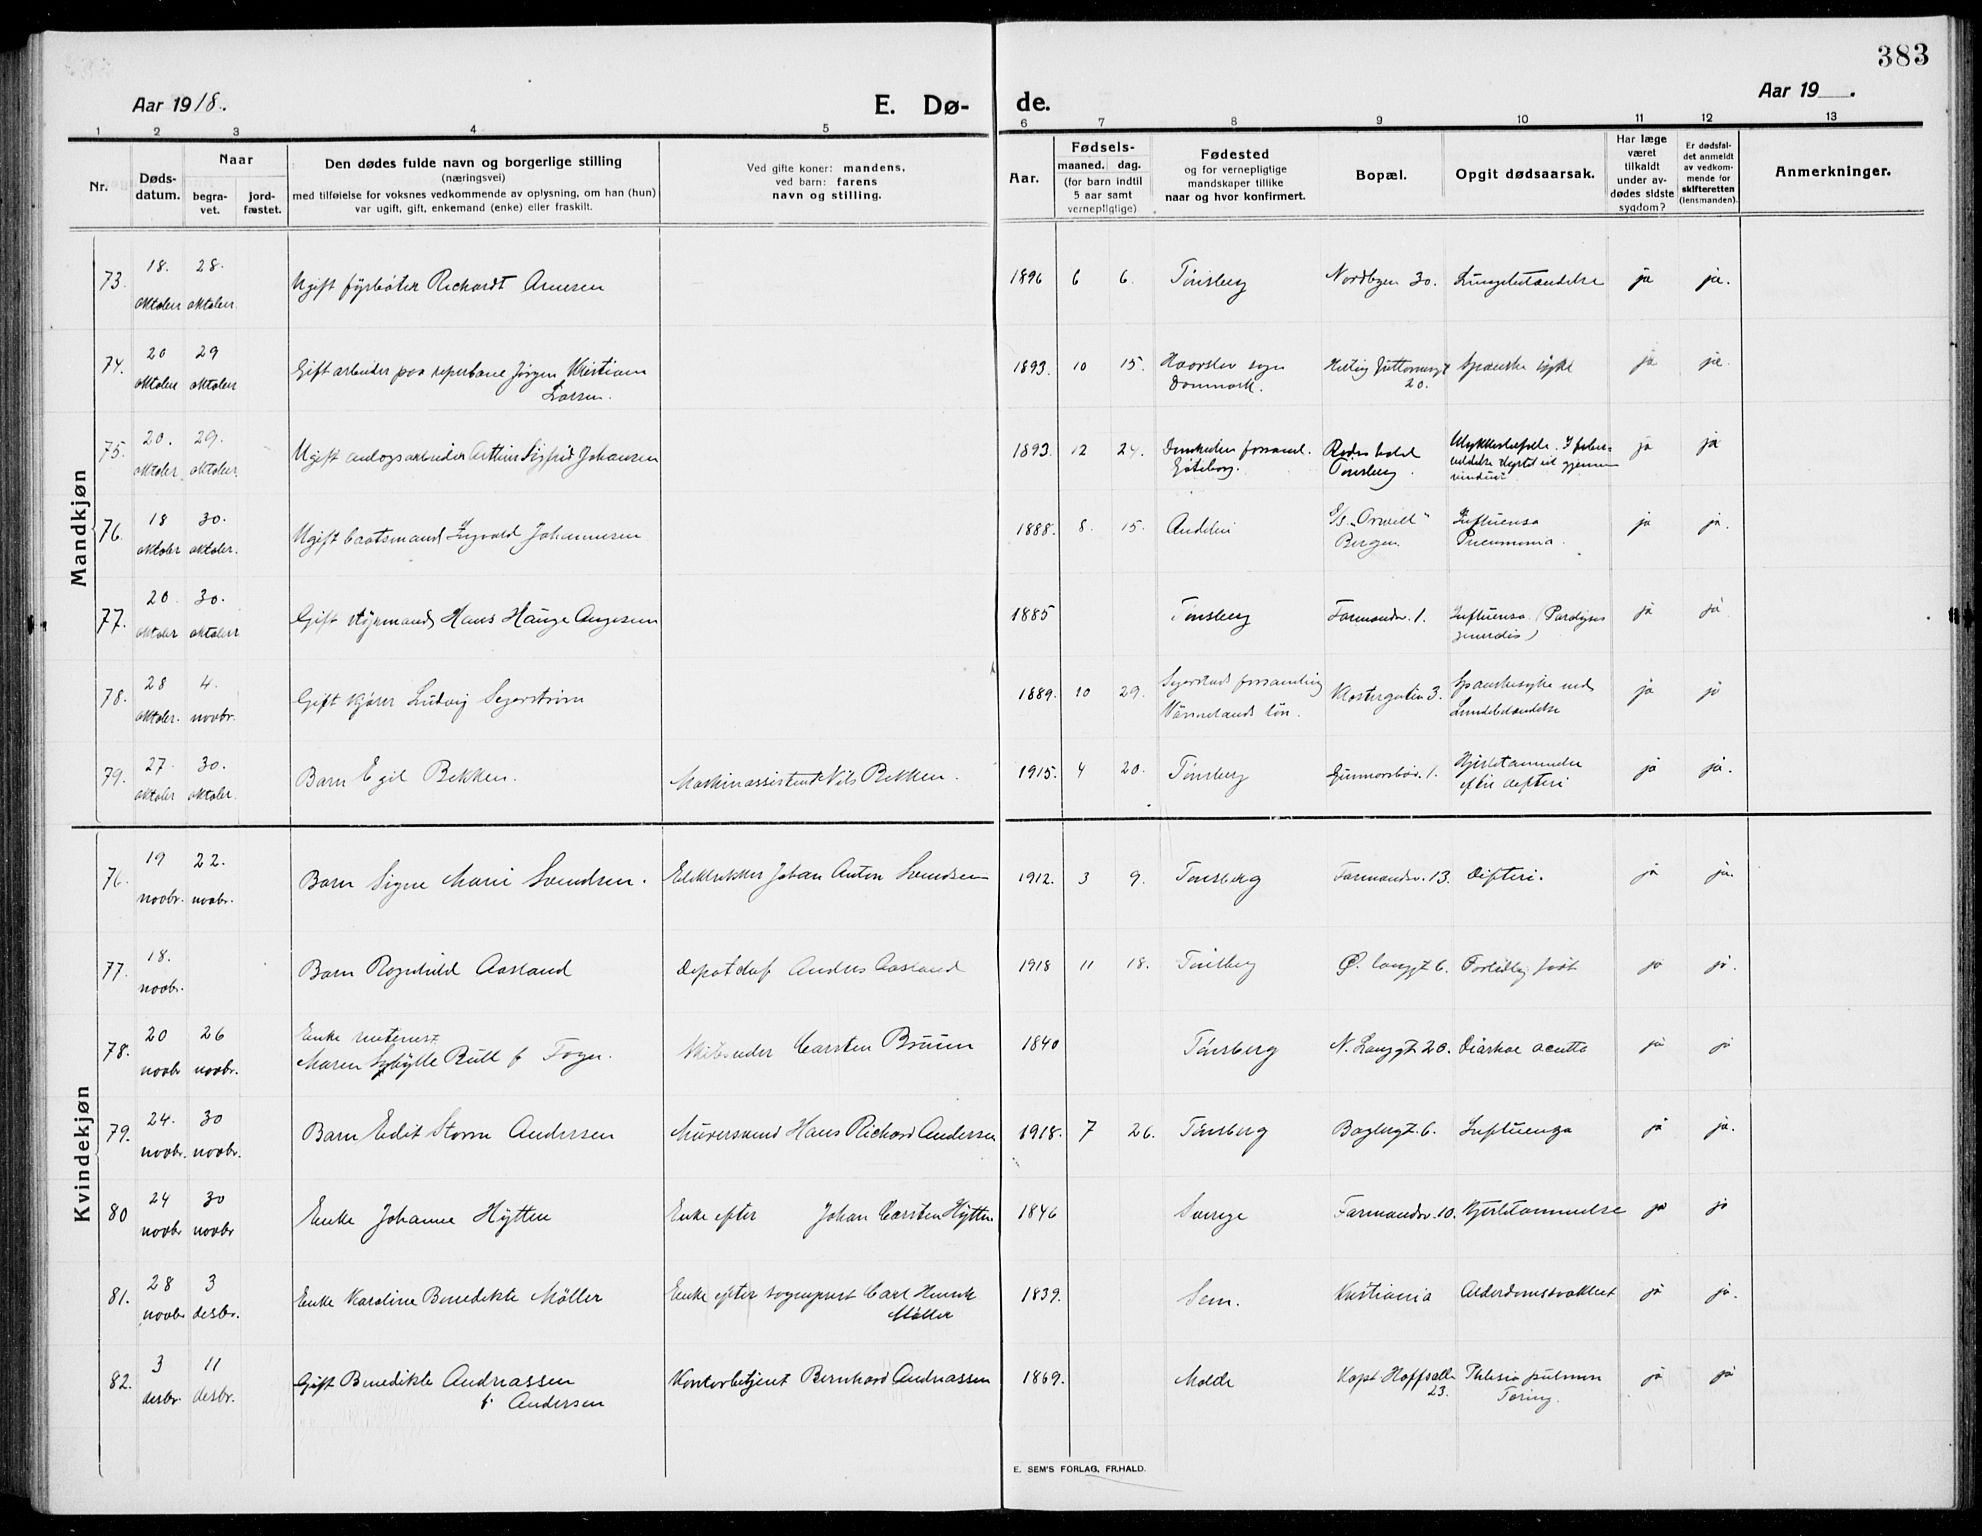 383
Aar 1918.
E. Dø-
de.
Aar 19 .
1 2 3 4 5 6 7 8 9 10 11 12 13
Nr.
Døds-
datum.
Naar
begra-
vet.
jord-
fæstet.
Den dødes fulde navn og borgerlige stilling
(næringsvei)
med tilføielse for voksnes vedkommende av oplysning, om han (hun)
var ugift, gift, enkemand (enke) eller fraskilt.
Ved gifte koner: mandens,
ved barn: farens
navn og stilling.
Aar.
Fødsels-
maaned. dag.
(for barn indtil
5 aar samt
vernepligtige)
Fødested
og for vernepligtige
mandskaper tillike
naar og hvor konfirmert.
Bopæl.
Opgit dødsaarsak.
Har læge
været
tilkaldt
under av-
dødes sidste
sygdom?
Er dødsfal-
det anmeldt
av vedkom-
mende for
skifteretten
(lensmanden).
Anmerkninger.
Mandkjøn
73. 18. oktober 28. oktober. Ugift fyrbøter Richardt Arnesen 1896 6 6. Tønsberg Nordbyen 30. Lungebetændelse ja ja.
74. 20 oktober 29 oktober Gift arbeider paa reperbane Jørgen Kristian
Larsen. 1893. 10 15. sogn
Danmark. 20. Spanske syke ja ja.
75. 20. oktober 29. oktober Ugift anlogsarbeider Arthur Sigfrid Johansen 1893. 12 24. forsaml.
Gøteborg. hotel
Tønsberg. ja ja
76. 18 oktober 30. oktober. Ugift baatsmand Ingvald Johannesen 1888. 8. 15. E/S. "Orwell"
Bergen. Influensa
Pneumonia. ja ja.
77. 20. oktober 30. oktober Gift Hans Hauge 1885 Tønsberg Farmandv. 1. Influensa. (Paralyses
generalis) ja ja
78. 28 oktober. 4. novbr. Gift kjører Ludvig Segerstrøm 1889. 10 29. Segerstads forsamling
Värmelands län. Klostergaten 3. Spanskesyke med
Lundebetændelse ja ja
79. 27. oktober 30. oktober. Barn Egil Bekken. Maskinassistent Nils Bekken. 1915. 4 20. Tønsberg Gunnarsbøv. 1. Hjertelammelse
efter difteri ja ja.
Kvindekjøn
76. 19 novbr. 22. novbr. Barn Signe Marie Svendsen. Elektrikker Johan Anton Svendsen 1912. 3 9. Tønsberg Farmandsv. 13. Difteri. ja ja.
77. 18. novbr. Barn Ragnhild Aasland Depotchef Anders Aasland 1918 11 18. Tønsberg Ø. langgt 6. Fortidlig født ja ja.
78. 20 novbr 26 novbr. Enke
Maren Rull f Foyn. Skibsreder Carsten Bruun 1840 Tønsberg N. Langgt 20. Diarhoe acutta ja ja
79. 24. novbr. 30 novbr. Barn Edit Storm Andersen Murersvend Hans Richard Andersen 1918. 7 26. Tønsberg Baglergt. 6. Influenza ja ja.
80 24 novbr 30 novbr Enke Johanne Hytten Enke efter Johan Carsten Hytten 1846 Sverige Farmandsv. 10. Hjertelammelse ja ja
81. 28 novbr 3 desbr. Enke Karoline Benedikte Møller Enke efter sogneprest Carl Henrik
Møller 1839. Sem. Kristiania Alderdomssvakhet ja ja.
82. 3 desbr. 11 desbr. Gift Benedikte Andreassen
f. Andersen Kontorbetjent Bernhard Andreassen 1869. Molde Kapt Hoffsalle
23. Phtisis pulmon
Tæring. ja ja
E. SEM'S FORLAG, FR.HALD.